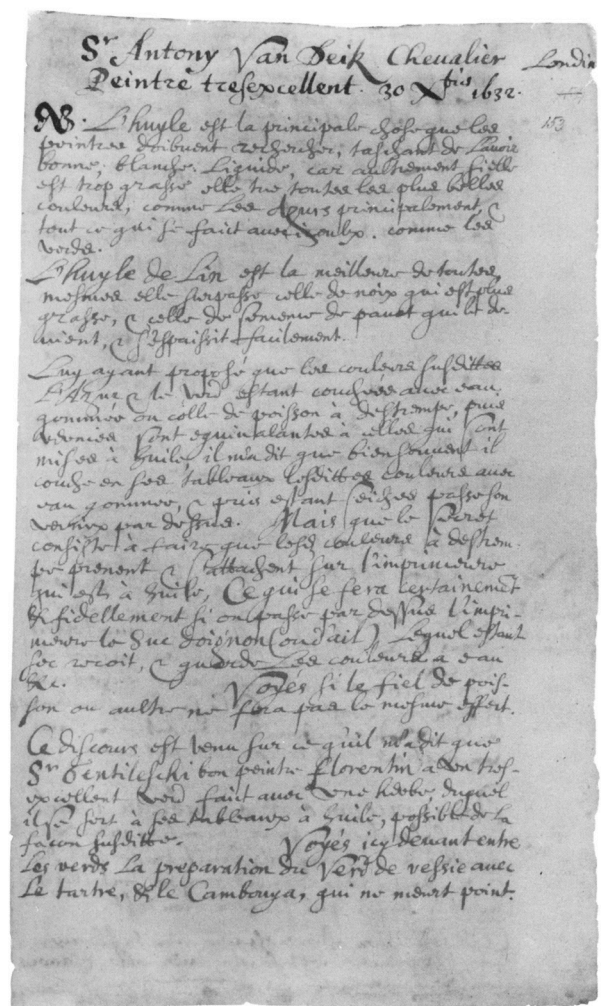 Sr Antony Van Deik Chevalier Londin
Peintre tresexcellent. 30 Xbris 1632.
153
NB. L'huyle est la principale chose que les
peintres doibvent rechercher, taschant de l'avoir
bonne, blanche. liquide, car aultrement si elle
est trop grasse elle tue toutes les plus belles
couleurs, comme Les Azurs principalement, &
tout ce qui se faict avec iceulx. comme les
verds.
L'huyle de Lin est la meilleure de toutes
mesmes elle surpasse celle de noix qui est plus
grasse, & celle de semence de pavot qui le de-
vient, & s'espaissit facilement.
Luy ayant proposé que les couleurs susdittes
L'Azur & le verd estant couchées avec eau
gommée ou colle de poisson à destrempe, puis
vernies sont equivalantes à celles qui sont
mises à huile, il m'a dit que bien souvent il
couche en ses tableaux lesdittes couleurs avec
eau gommée, & puis estant seiches passe son
vernix par dessus. Mais que le secret
consiste à faire que lesd. couleurs à destrem-
pe prenent & s'attachent sur l'imprimeure
qui est à huile, Ce qui se fera certainemt
& fidellement si on passe par dessus l'impri-
meure le Suc d'oignon (ou d'ail) Lequel estant
sec reçoit, & guarde Les couleurs à eau
&c. Voyés si le fiel de pois-
son ou aultre ne fera pas le mesme effect.
Ce discours est venu sur ce qu'il m'a dit que
Sr Gentileschi bon peintre florentin a un tres-
excellent verd faict avec une herbe, duquel
il se sert à ses tableaux à huile, possible de la
façon susditte. Voyés icy devant entre
Les verds La preparation du Verd de vessie avec
Le tartre, & le Cambouya, qui ne meurt point.